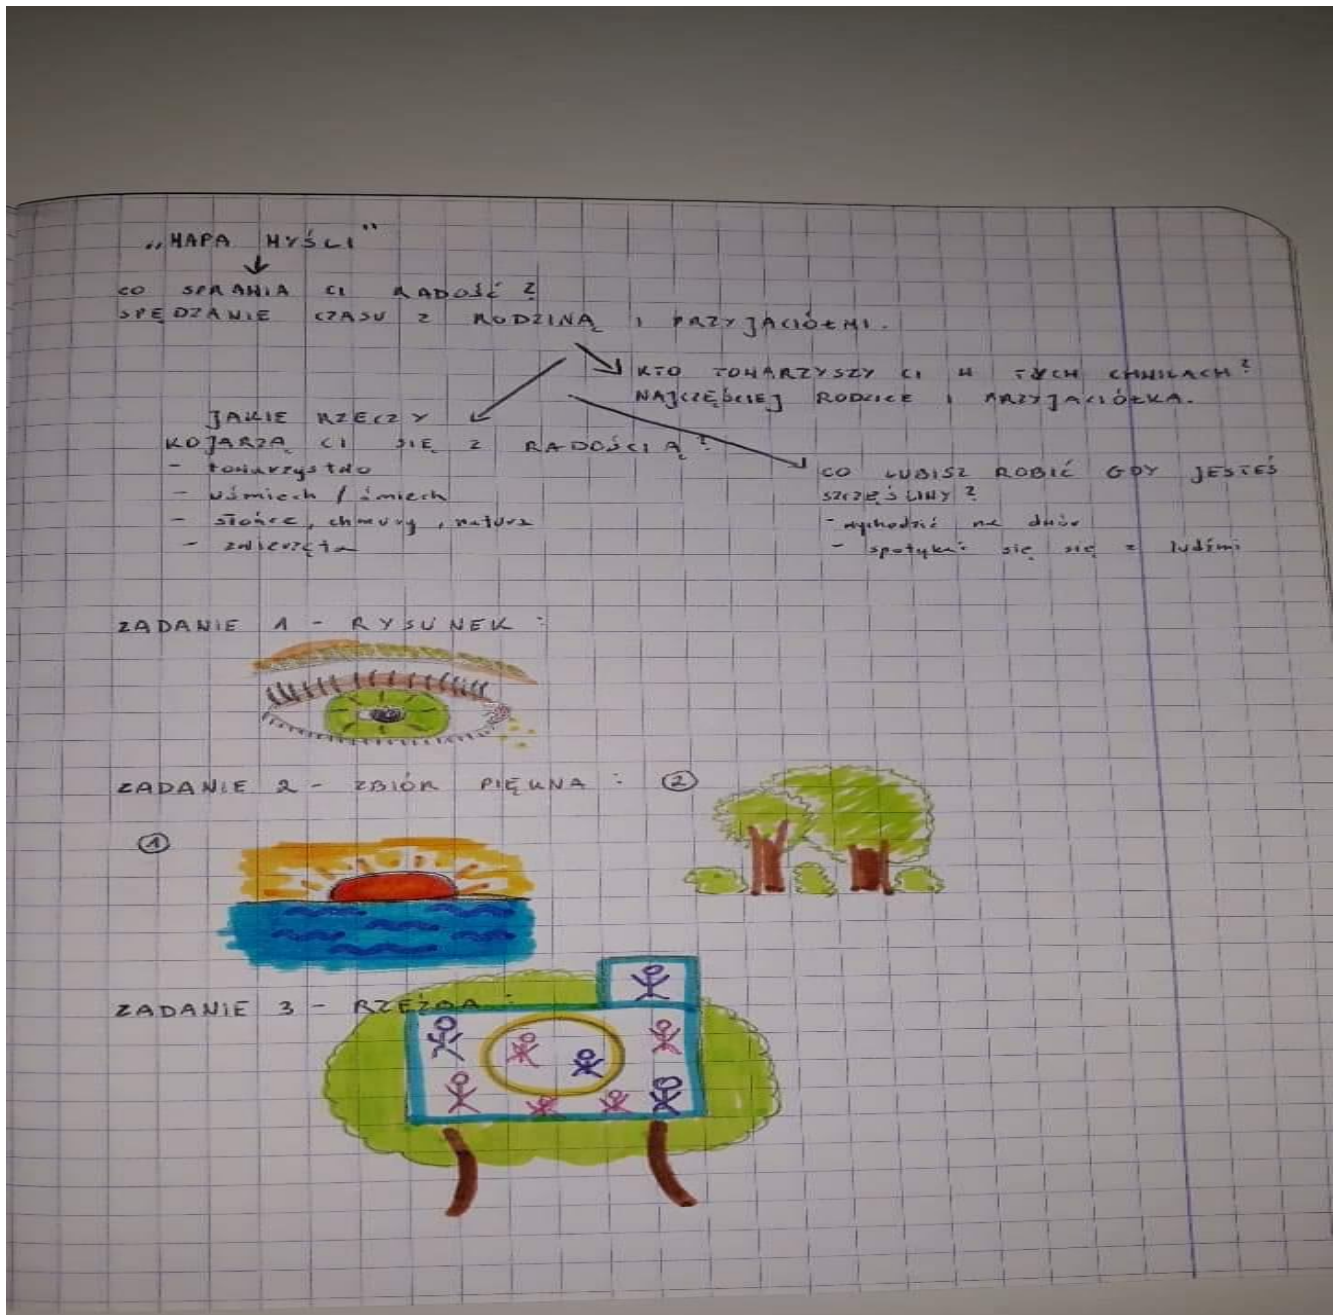 „MAPA MYŚLI”
CO SPRAWIA CI RADOŚĆ?
SPĘDZANIE CZASU Z RODZINĄ I PRZYJACIÓŁMI.
KTO TOWARZYSZY CI W TYCH CHWILACH?
NAJCZĘŚCIEJ RODZICE I PRZYJACIÓŁKA.
JAKIE RZECZY
KOJARZĄ CI SIĘ Z RADOŚCIĄ?
- towarzystwo
- uśmiech / śmiech
- słońce, chmury, natura
- zwierzęta
CO LUBISZ ROBIĆ GDY JESTEŚ
SZCZĘŚLIWY?
- wychodzić na dwór
- spotykać się się z ludźmi
ZADANIE 1 - RYSUNEK:
ZADANIE 2 - ZBIÓR PIĘKNA: 2
1
ZADANIE 3 - RZEŹBA: